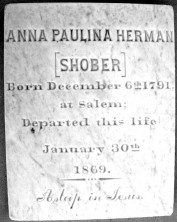 ANNA PAULINA HERMAN
[SHOBER]
Born December 6th 1791
at Salem;
Departed this life
January 30th
1869.
Asleep in Jesus